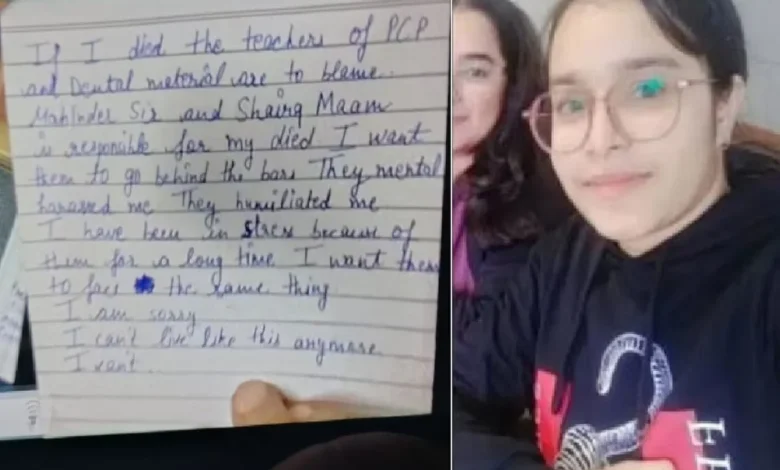 If I died the teachers of PCP
and Dental material are to blame.
Mahinder Sir and Shairg Maam
is responible for my died I want
them to go behind the bars They mental
harassed me They humiliated me
I have been in stress because of
them for a long time I want them
to face the same thing
I am sorry
I can't live like this anymore
I can't